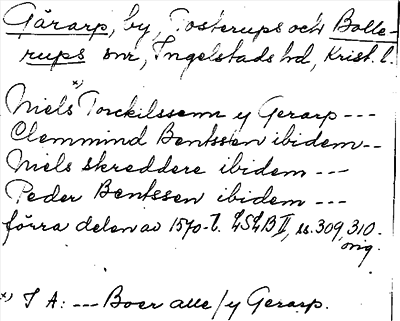 Gärarp, by, Tosterups och Bolle-
rups snr, Ingelstads hd, Krist. l.
Niels x) Torckilssenn y Gerarp ---
Clemmind Bentssen ibidem --
Niels skreddere ibidem ---
Peder Bentssen ibidem ---
förra delen av 1570-t. LSLB II, ss. 309, 310.
orig.
x) I A: --- Boer alle / y Gerarp.